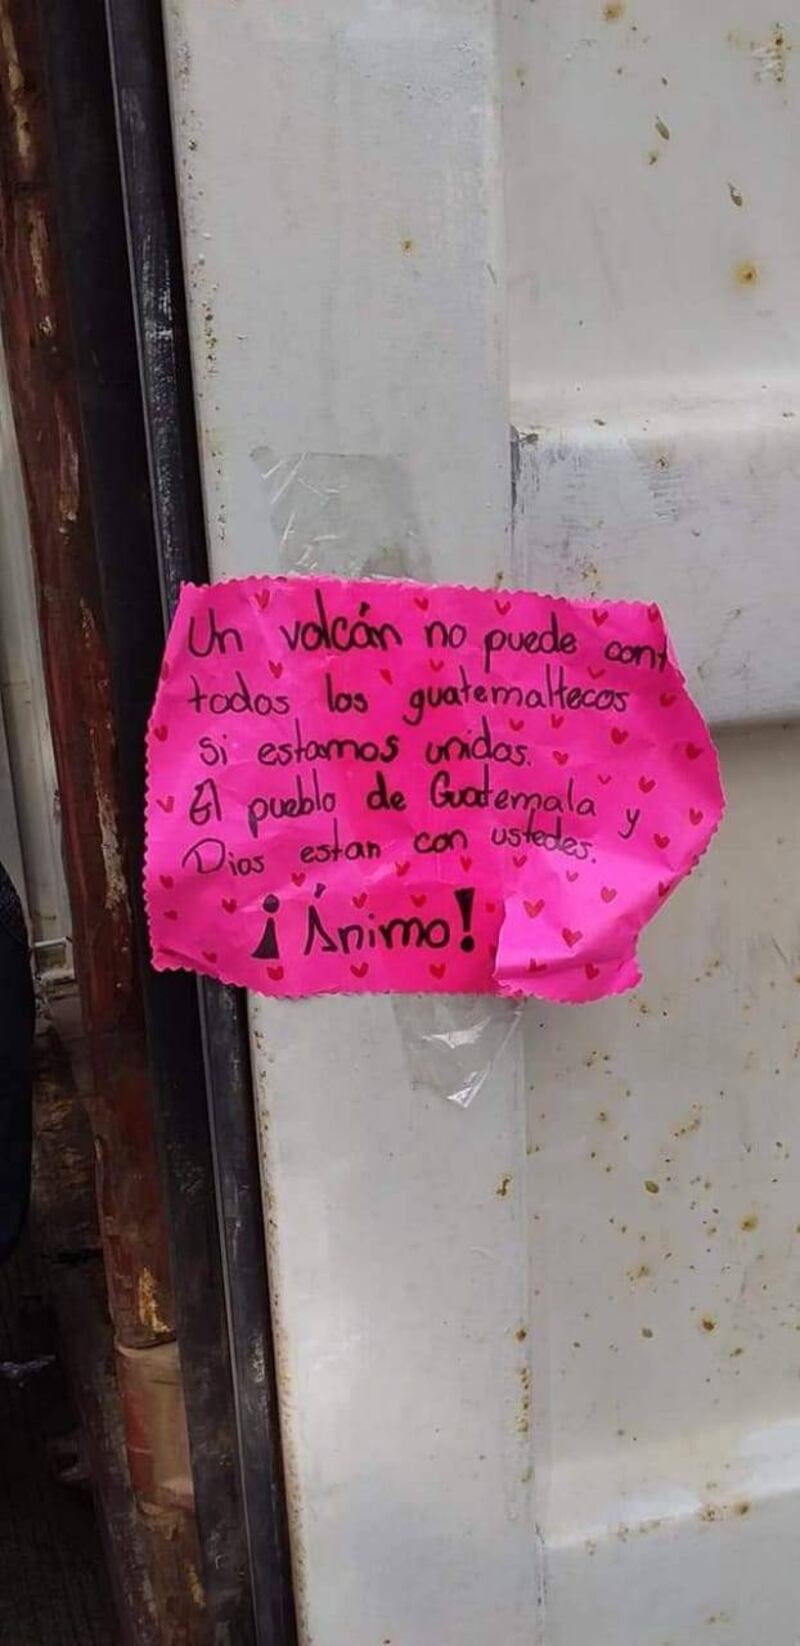 Un volcán no puede cont
todos los guatemaltecos
si estamos unidos.
El pueblo de Guatemala y
Dios estan con ustedes.
¡Ánimo!